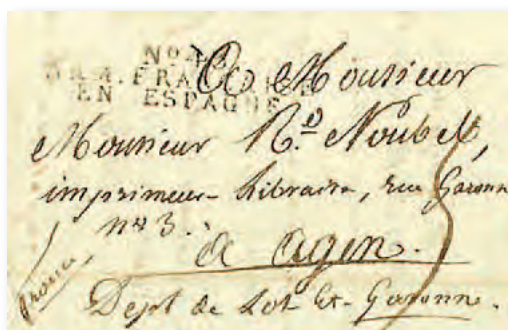 No 4
ARM. FRANÇAISE
EN ESPAGNE
A Monsieur
Monsieur Rd. Noubel,
imprimeur-libraire, rue Garonne
no 3.
à agen.
Dept de Lot et-Garonne.
france